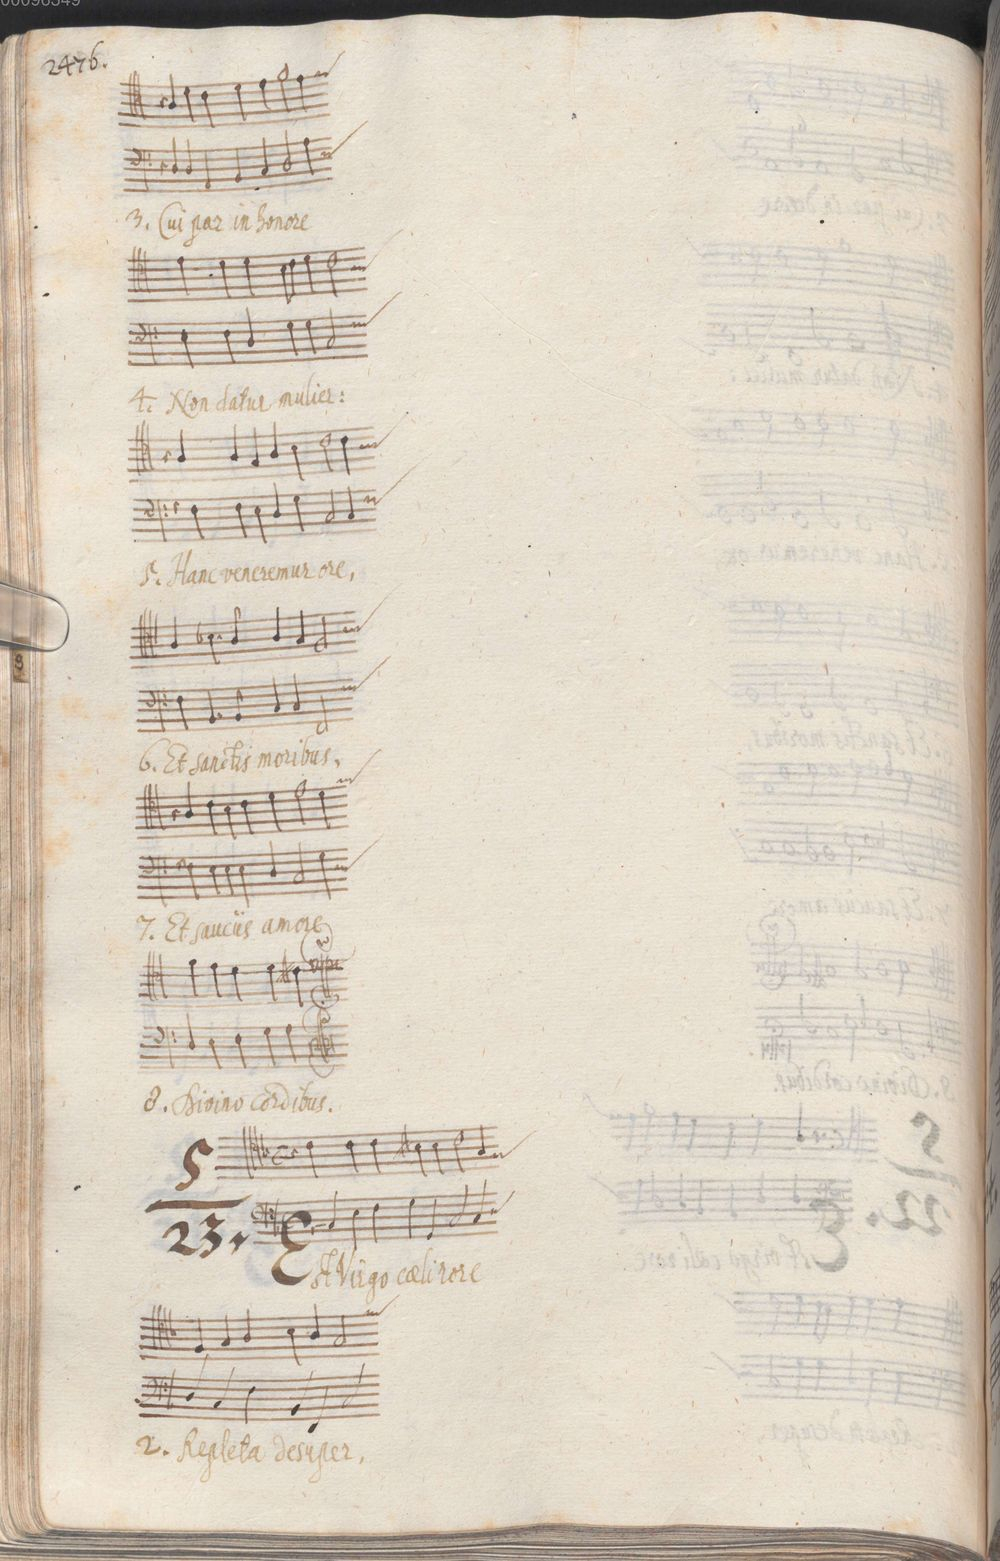 00098349
2476.
3. Cui par in honore
4. Non datur mulier:
5. Hanc veneremur ore,
6. Et sanctis moribus,
7. Et sauciis amore
8. Divino cordibus.
5
23.
Est Virgo cæli rore
2. Repleta desuper,